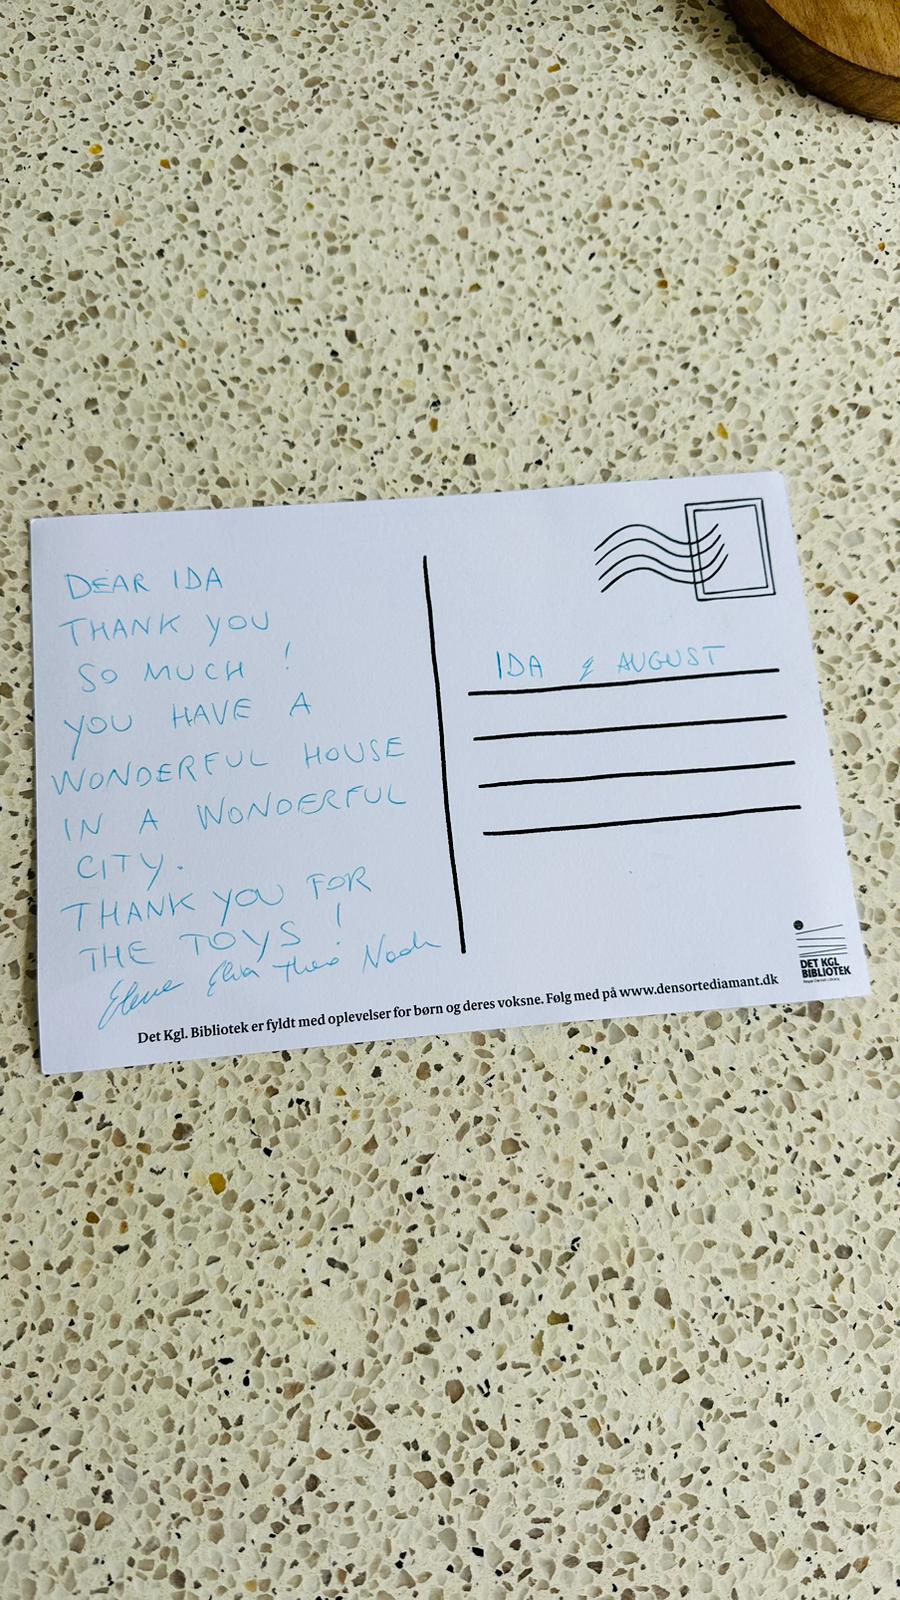 DEAR IDA
THANK YOU
SO MUCH !
YOU HAVE A
WONDERFUL HOUSE
IN A WONDERFUL
CITY.
THANK YOU FOR
THE TOYS !
Elena Elia Theo Noah
IDA & AUGUST
DET KGL
BIBLIOTEK
Royal Danish Library
Det Kgl. Bibliotek er fyldt med oplevelser for børn og deres voksne. Følg med på www.densortediamant.dk